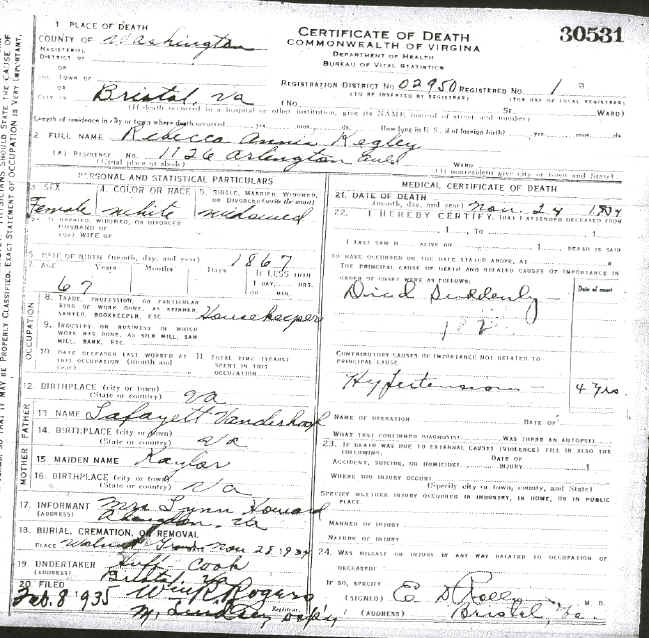 1 PLACE OF DEATH
COUNTY OF Washington
CERTIFICATE OF DEATH
COMMONWEALTH OF VIRGINIA
DEPARTMENT OF HEALTH
BUREAU OF VITAL STATISTICS
30531
MAGISTERIAL DISTRICT OF
OR
INC. TOWN OF
OR
CITY OF Bristol, Va
REGISTRATION DISTRICT NO. 02950 REGISTERED NO. 1
(TO BE INSERTED BY REGISTRAR) (FOR USE OF LOCAL REGISTRAR)
(No. St. WARD)
(If death occurred in a hospital or other institution, give its NAME instead of street and number)
Length of residence in city or town where death occurred yrs. mos. ds. How long in U. S., if of foreign birth? yrs. mos. ds.
2 FULL NAME Rebecca Annie Kegley
(A) RESIDENCE No. 1126 Arlington WARD
(Usual place of abode) (If nonresident give city or town and State)
PERSONAL AND STATISTICAL PARTICULARS
3. SEX
Female
4. COLOR OR RACE
White
5. SINGLE, MARRIED, WIDOWED, OR DIVORCED (write the word)
widowed
5A. IF MARRIED, WIDOWED, OR DIVORCED
HUSBAND OF
(OR) WIFE OF
6. DATE OF BIRTH (month, day, and year) 1867
7. AGE Years Months Days IF LESS THAN
1 DAY, HRS.
OR MIN.
67
OCCUPATION
8. TRADE, PROFESSION, OR PARTICULAR
KIND OF WORK DONE, AS SPINNER,
SAWYER, BOOKKEEPER, ETC. Housekeeper
9. INDUSTRY OR BUSINESS IN WHICH
WORK WAS DONE, AS SILK MILL, SAW
MILL, BANK, ETC.
10. DATE DECEASED LAST WORKED AT
THIS OCCUPATION (month and
year)
11. TOTAL TIME (YEARS)
SPENT IN THIS
OCCUPATION
12. BIRTHPLACE (city or town)
(State or country) Va
FATHER
13. NAME Lafayett Vanderhook
14. BIRTHPLACE (city or town)
(State or country) Va
MOTHER
15. MAIDEN NAME Kaylor
16. BIRTHPLACE (city or town)
(State or country) Va
17. INFORMANT Mrs Lynn Howard
(ADDRESS) Abingdon, Va
18. BURIAL, CREMATION, OR REMOVAL
PLACE Walnut Nov 25 1934
19. UNDERTAKER Cook
(ADDRESS) Bristol, Va
20. FILED Feb. 8 1935 Rogers
Registrar.
MEDICAL CERTIFICATE OF DEATH
21. DATE OF DEATH
(month, day, and year) Nov. 24 1934
22. I HEREBY CERTIFY, THAT I ATTENDED DECEASED FROM
1 , TO 1
I LAST SAW H ALIVE ON 1 DEATH IS SAID
TO HAVE OCCURRED ON THE DATE STATED ABOVE, AT M.
THE PRINCIPAL CAUSE OF DEATH AND RELATED CAUSES OF IMPORTANCE IN
ORDER OF ONSET WERE AS FOLLOWS:
Date of onset
Died Suddenly
CONTRIBUTORY CAUSES OF IMPORTANCE NOT RELATED TO
PRINCIPAL CAUSE:
Hypertension 4 yrs.
NAME OF OPERATION DATE OF
WHAT TEST CONFIRMED DIAGNOSIS? WAS THERE AN AUTOPSY?
23. IF DEATH WAS DUE TO EXTERNAL CAUSES (VIOLENCE) FILL IN ALSO THE
FOLLOWING:
ACCIDENT, SUICIDE, OR HOMICIDE? DATE OF INJURY 1
WHERE DID INJURY OCCUR?
(Specify city or town, county, and State)
SPECIFY WHETHER INJURY OCCURRED IN INDUSTRY, IN HOME, OR IN PUBLIC
PLACE.
MANNER OF INJURY
NATURE OF INJURY
24. WAS DISEASE OR INJURY IN ANY WAY RELATED TO OCCUPATION OF
DECEASED?
IF SO, SPECIFY
(SIGNED) M. D.
(ADDRESS) Bristol, Va.